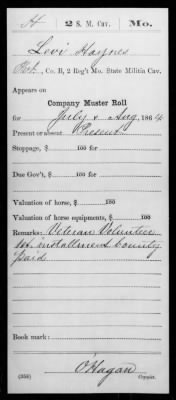 H 2 S. M. Cav. Mo.
Levi Haynes
Pvt., Co. B, 2 Reg't Mo. State Militia Cav.
Appears on
Company Muster Roll
for July & Aug, 1864
Present or absent Present
Stoppage, $ 100 for
Due Gov't, $ 100 for
Valuation of horse, $ 100
Valuation of horse equipments, $ 100
Remarks: Veteran Volunteer
1st installment bounty
paid
Book mark:
O'Hagan
(358) Copyist.